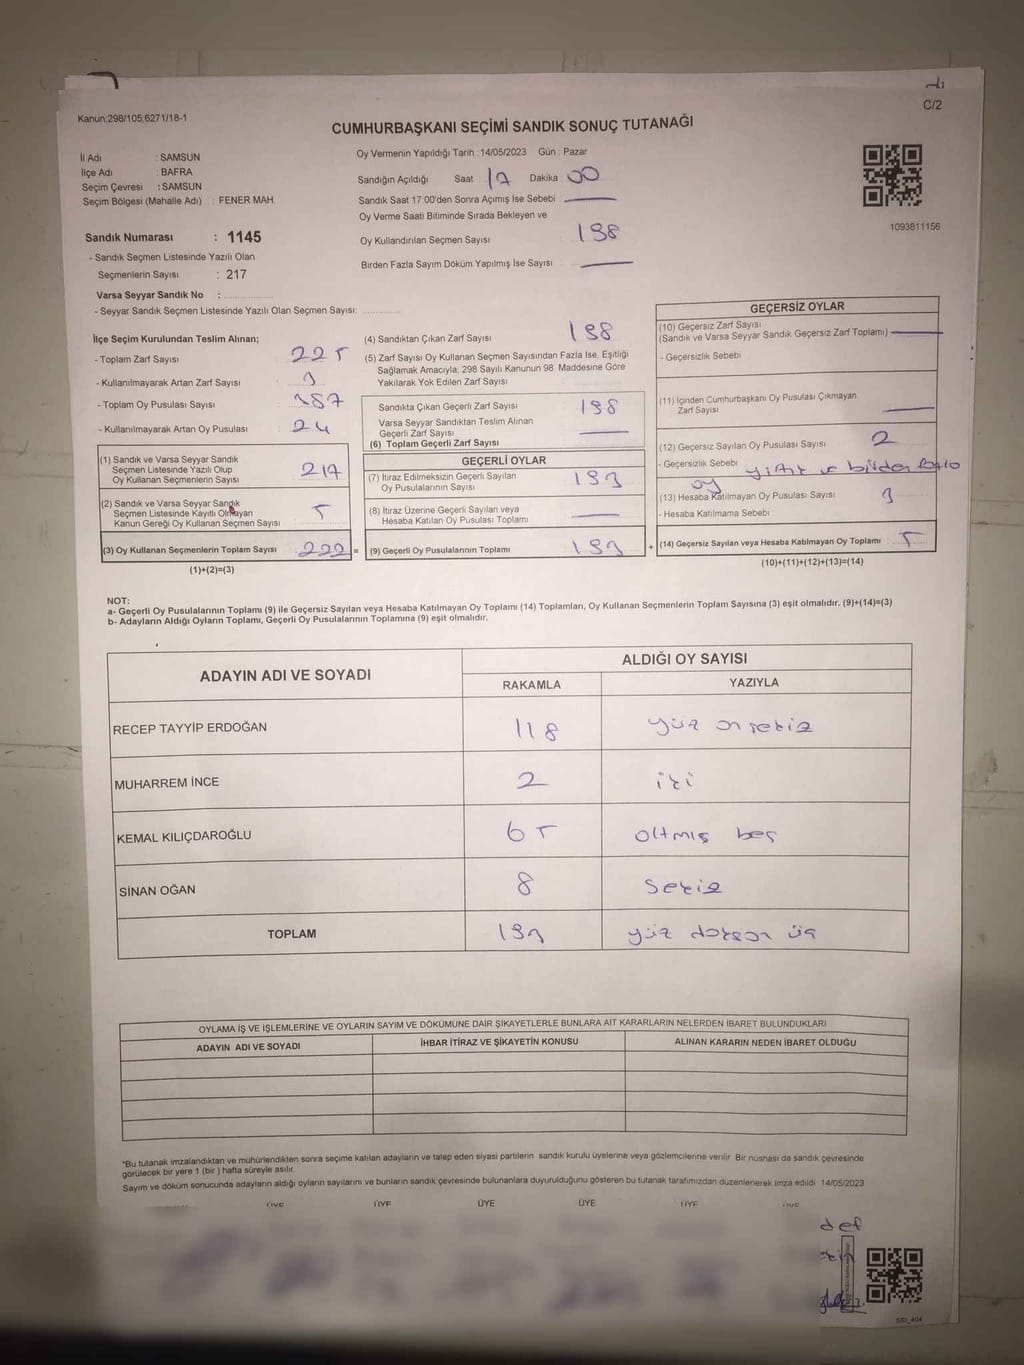 C/2
Kanun;298/105;6271/18-1
CUMHURBAŞKANI SEÇİMİ SANDIK SONUÇ TUTANAĞI
İl Adı : SAMSUN
İlçe Adı : BAFRA
Seçim Çevresi : SAMSUN
Seçim Bölgesi (Mahalle Adı) : FENER MAH.
Sandık Numarası : 1145
- Sandık Seçmen Listesinde Yazılı Olan
Seçmenlerin Sayısı : 217
Varsa Seyyar Sandık No :
- Seyyar Sandık Seçmen Listesinde Yazılı Olan Seçmen Sayısı:
Oy Vermenin Yapıldığı Tarih : 14/05/2023 Gün : Pazar
Sandığın Açıldığı Saat 17 Dakika 00
Sandık Saat 17:00'den Sonra Açımış İse Sebebi
Oy Verme Saati Bitiminde Sırada Bekleyen ve
Oy Kullandırılan Seçmen Sayısı 198
Birden Fazla Sayım Döküm Yapılmış İse Sayısı
1093811156
İlçe Seçim Kurulundan Teslim Alınan;
- Toplam Zarf Sayısı 225
- Kullanılmayarak Artan Zarf Sayısı 3
- Toplam Oy Pusulası Sayısı
- Kullanılmayarak Artan Oy Pusulası 24
(1) Sandık ve Varsa Seyyar Sandık
Seçmen Listesinde Yazılı Olup
Oy Kullanan Seçmenlerin Sayısı 217
(2) Sandık ve Varsa Seyyar Sandık
Seçmen Listesinde Kayıtlı Olmayan
Kanun Gereği Oy Kullanan Seçmen Sayısı 5
(3) Oy Kullanan Seçmenlerin Toplam Sayısı 222 =
(1)+(2)=(3)
(4) Sandıktan Çıkan Zarf Sayısı 198
(5) Zarf Sayısı Oy Kullanan Seçmen Sayısından Fazla İse, Eşitliği
Sağlamak Amacıyla; 298 Sayılı Kanunun 98. Maddesine Göre
Yakılarak Yok Edilen Zarf Sayısı
Sandıkta Çıkan Geçerli Zarf Sayısı 198
Varsa Seyyar Sandıktan Teslim Alınan
Geçerli Zarf Sayısı
(6) Toplam Geçerli Zarf Sayısı
GEÇERLİ OYLAR
(7) İtiraz Edilmeksizin Geçerli Sayılan
Oy Pusulalarının Sayısı 193
(8) İtiraz Üzerine Geçerli Sayılan veya
Hesaba Katılan Oy Pusulası Toplamı
(9) Geçerli Oy Pusulalarının Toplamı 193 +
GEÇERSİZ OYLAR
(10) Geçersiz Zarf Sayısı
(Sandık ve Varsa Seyyar Sandık Geçersiz Zarf Toplamı)
- Geçersizlik Sebebi
(11) İçinden Cumhurbaşkanı Oy Pusulası Çıkmayan
Zarf Sayısı
(12) Geçersiz Sayılan Oy Pusulası Sayısı 2
- Geçersizlik Sebebi yırtık ve birden fazla
oy
(13) Hesaba Katılmayan Oy Pusulası Sayısı 3
- Hesaba Katılmama Sebebi
(14) Geçersiz Sayılan veya Hesaba Katılmayan Oy Toplamı 5
(10)+(11)+(12)+(13)=(14)
NOT:
a- Geçerli Oy Pusulalarının Toplamı (9) ile Geçersiz Sayılan veya Hesaba Katılmayan Oy Toplamı (14) Toplamları, Oy Kullanan Seçmenlerin Toplam Sayısına (3) eşit olmalıdır. (9)+(14)=(3)
b- Adayların Aldığı Oyların Toplamı, Geçerli Oy Pusulalarının Toplamına (9) eşit olmalıdır.
ADAYIN ADI VE SOYADI ALDIĞI OY SAYISI
RAKAMLA YAZIYLA
RECEP TAYYİP ERDOĞAN 118 yüz on sekiz
MUHARREM İNCE 2 iki
KEMAL KILIÇDAROĞLU 65 altmış beş
SİNAN OĞAN 8 sekiz
TOPLAM 193 yüz doksan üç
OYLAMA İŞ VE İŞLEMLERİNE VE OYLARIN SAYIM VE DÖKÜMÜNE DAİR ŞİKAYETLERLE BUNLARA AİT KARARLARIN NELERDEN İBARET BULUNDUKLARI
ADAYIN ADI VE SOYADI İHBAR İTİRAZ VE ŞİKAYETİN KONUSU ALINAN KARARIN NEDEN İBARET OLDUĞU
*Bu tutanak imzalandıktan ve mühürlendikten sonra seçime katılan adayların ve talep eden siyasi partilerin sandık kurulu üyelerine veya gözlemcilerine verilir. Bir nüshası da sandık çevresinde
görülecek bir yere 1 (bir ) hafta süreyle asılır.
Sayım ve döküm sonucunda adayların aldığı oyların sayılarını ve bunların sandık çevresinde bulunanlara duyurulduğunu gösteren bu tutanak tarafımızdan düzenlenerek imza edildi. 14/05/2023
ÜYE ÜYE ÜYE ÜYE ÜYE ÜYE
def
SSI_404